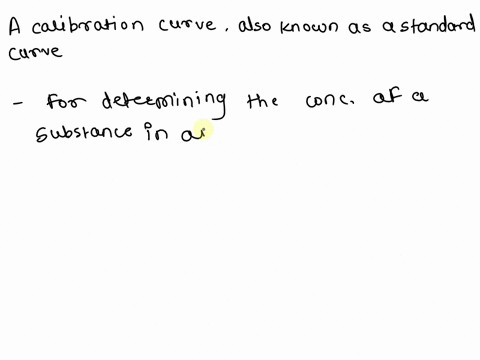 A calibration curve, also known as a standard
curve
- for determining the conc. of a
substance in an